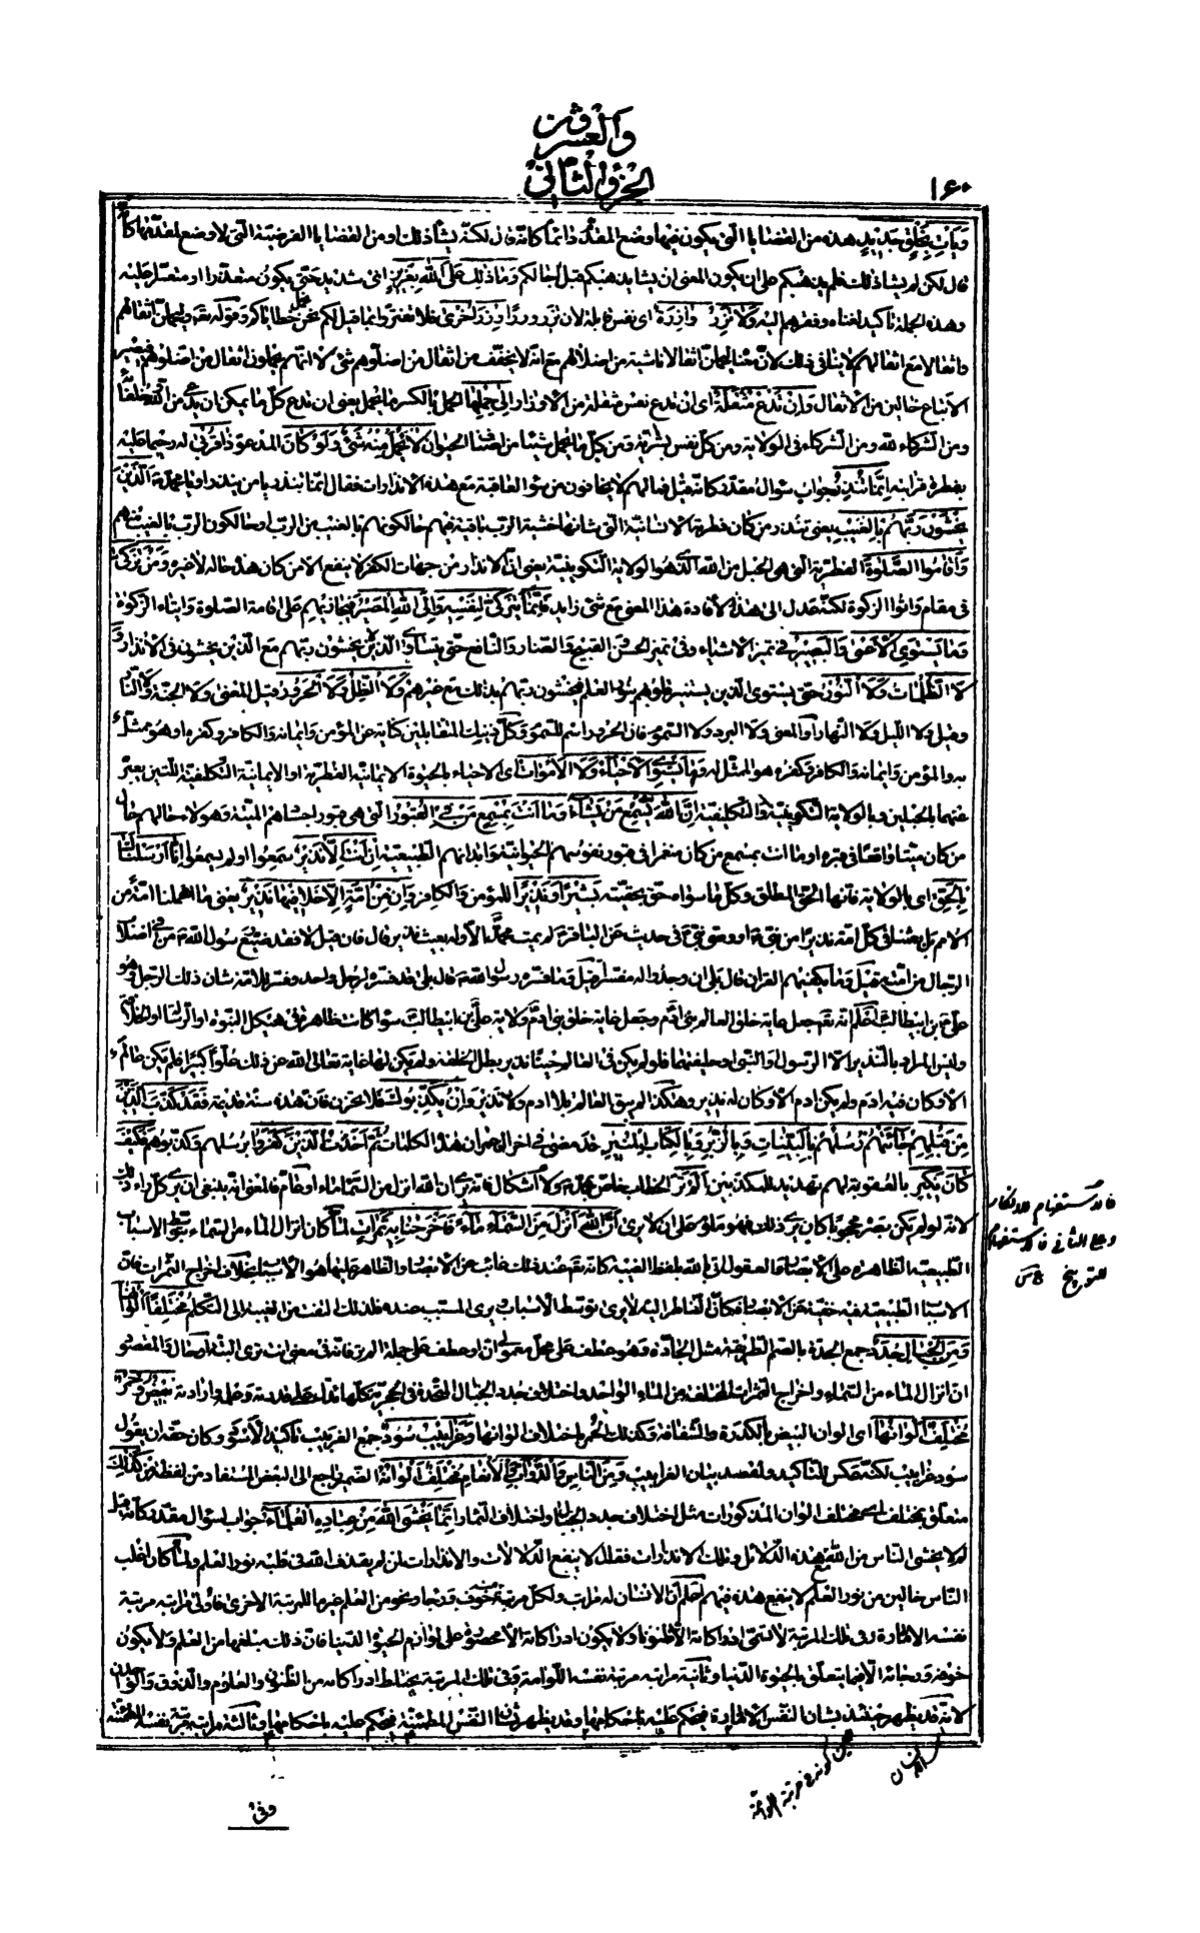 والعشرون
الجزو الثانى
١٦٠
وَيَأْتِ بِخَلْقٍ جَدِيدٍ هذه من القضايا التى يكون فيها وضع المقدم دائما كانه قال لكنه يشأ ذلك او من القضايا الفرضية التى لا وضع لمقدمها كانه
قال لكن لم يشأ ذلك فلم يذهبكم على ان يكون المعنى ان يشأ يذهبكم قبل اجالكم وَمَا ذٰلِكَ عَلَى اللهِ بِعَزِيزٍ اى شديد حتى يكون متعذرا او متعسرا عليه
وهذه الجملة تأكيد لغناه وفقرهم اليه وَلَا تَزِرُ وَازِرَةٌ اى نفس قابلة لان تزر وِزْرَ أُخْرَىٰ فلا تغتروا بما قيل لكم نحن نحمل خطاياكم وقوله تعالى وليحملن اثقالهم
واثقالا مع اثقالهم لا ينافى ذلك لان معنا ليحملن اثقالا ناشئة من اضلالهم مع انه لا يخفف من اثقال من اضلوهم شئ لا انهم يحملون اثقال من اضلوهم فيصير
الاتباع خالين من الاثقال وَإِنْ تَدْعُ مُثْقَلَةٌ اى ان تدع نفس مثقلة من الاوزار إِلَىٰ حِمْلِهَا الحمل بالكسر ما يحمل يعنى ان تدع كل ما يمكن ان يدعى من
ومن الشركاء لله ومن الشركاء فى الولاية ومن كل نفس بشرية ومن كل ما يحمل شيئا من الحيوان لَا يُحْمَلْ مِنْهُ شَيْءٌ وَلَوْ كَانَ المدعو ذَا قُرْبَىٰ له رحيما عليه
بفطرة قرابته إِنَّمَا تُنْذِرُ جواب سؤال مقدر كانه قيل فما لهم لا يخافون من سوء العاقبة مع هذه الانذارات فقال انما تنذر يا من ينذر او يا محمد ص الَّذِينَ
يَخْشَوْنَ رَبَّهُمْ بِالْغَيْبِ يعنى تنذر من كان فطرته الانسانية التى شأنها خشية الرب باقية فيهم حالكونهم بالغيب من الرب او حالكون الرب بالغيب منهم
وَأَقَامُوا الصَّلَوٰةَ الفطرية التى هى الحبل من الله الذى هو الولاية التكوينية يعنى ان الانذار من جهات الكفر لا ينفع الا من كان هذا حاله لا غيره وَمَنْ تَزَكَّىٰ
فى مقام واتوا الزكوة لكنه عدل الى هذا لافادة هذا المعنى مع شئ زايد فَإِنَّمَا يَتَزَكَّىٰ لِنَفْسِهِ وَإِلَى اللهِ الْمَصِيرُ فيجازيهم على اقامة الصلوة وايتاء الزكوة
وَمَا يَسْتَوِي الْأَعْمَىٰ وَالْبَصِيرُ فى تميز الاشياء وفى تميز الحسن القبيح والضار والنافع حتى يتساوى الذين لا يخشون ربهم مع الذين يخشونه فى الانذار وَ
لَا الظُّلُمَاتُ وَلَا النُّورُ حتى يستوى الذين يستنير قلوبهم بنور العلم فيخشون ربهم بذلك مع غيرهم وَلَا الظِّلُّ وَلَا الْحَرُورُ قيل المعنى ولا الجنة ولا النار
وقيل ولا الليل ولا النهار او المعنى ولا البرد ولا السموم فان الحرور اسم للسموم وكل قرينات المتقابلين كناية عن المؤمن وايمانه والكافر وكفره او هو مثل
به والمؤمن وايمانه والكافر وكفره هو الممثل له وَمَا يَسْتَوِي الْأَحْيَاءُ وَلَا الْأَمْوَاتُ اى الاحياء بالحيوة الايمانية الفطرية او الايمانية التكليفية اللتين يعبر
عنهما بالحبلين وبالولاية التكوينية والتكليفية إِنَّ اللهَ يُسْمِعُ مَنْ يَشَاءُ وَمَا أَنْتَ بِمُسْمِعٍ مَنْ فِي الْقُبُورِ التى هى قبور اجسادهم الميتة وهؤلاء حالهم حال
من كان ميتا واقعا فى قبره او ما انت بمسمع من كان منغمرا فى قبور نفوسهم الحيوانية وابدانهم الطبيعية إِنْ أَنْتَ إِلَّا نَذِيرٌ سمعوا او لم يسمعوا إِنَّا أَرْسَلْنَاكَ
بِالْحَقِّ اى بالولاية فانها الحق المطلق وكل ما سواه حق بحقيته بَشِيرًا وَنَذِيرًا للمؤمن والكافر وَإِنْ مِنْ أُمَّةٍ إِلَّا خَلَا فِيهَا نَذِيرٌ يعنى ما اهملنا امة من
الامم بل بعثنا فى كل امة نذيرا من نبى او وصى نبى فى حديث عن الباقر ع لم يمت محمد ص الا وله بعيث نذير قال فان قيل لا فقد ضيع رسول الله ص من فى اصلاب
الرجال من امته قيل وما يكفيهم القران قال بلى ان وجدوا له مفسرا قيل وما فسره رسول الله ص قال بلى قد فسره لرجل واحد وفسر للامة شان ذلك الرجل وهو
على بن ابيطالب ع اعلم انه تعالى جعل غاية خلق العالم بنى ادم وجعل غاية خلق بنى ادم ولاية على بن ابيطالب سواء كانت ظاهرة فى هيكل النبوة او الرسالة او الخلافة
وليس المراد بالنذير الا الرسول والنبى او خليفتهما فلو لم يكن فى العالم حينا نذير بطل الخلقة ولم يكن لها غاية تعالى الله عن ذلك علوا كبيرا فلم يكن عالم
الا وكان فيه ادم ولم يكن ادم الا وكان له نذير وهكذا لم يبق العالم بلا ادم ولا نذير وَإِنْ يُكَذِّبُوكَ فلا تحزن فان هذه سنة قديمة فَقَدْ كَذَّبَ الَّذِينَ
مِنْ قَبْلِهِمْ جَاءَتْهُمْ رُسُلُهُمْ بِالْبَيِّنَاتِ وَبِالزُّبُرِ وَبِالْكِتَابِ الْمُنِيرِ قد مضى فى اخر ال عمران هذا الكلمات ثُمَّ أَخَذْتُ الَّذِينَ كَفَرُوا برسلهم وكذبوهم فَكَيْفَ
كَانَ نَكِيرِ بالعقوبة لهم تهديد للمكذبين أَلَمْ تَرَ الخطاب خاص بمحمد ص ولا اشكال فانه يرى ان الله انزل من السماء ماء او عام فالمعنى انه ينبغى ان يرى كل راء ذلك
لانه لو لم يكن بصره محجوبا كان يرى ذلك فهو ملوم على ان لا يرى أَنَّ اللهَ أَنْزَلَ مِنَ السَّمَاءِ مَاءً فَأَخْرَجْنَا بِهِ ثَمَرَاتٍ لما كان انزال الماء من السماء بتوسط الاسباب
الطبيعية الظاهرة على الابصار والعقول اتى بالله بلفظ الغيبة كانه تعالى عند ذلك غائب عن الابصار والظاهر عليها هو الاسباب بخلاف اخراج الثمرات فان
الاسباب الطبيعية فيه خفية عن الابصار فكان الناظر اليه لا يرى توسط الاسباب يرى المسبب عنده فلذلك التفت من الغيبة الى التكلم مُخْتَلِفًا أَلْوَانُهَا
وَمِنَ الْجِبَالِ جُدَدٌ جمع الجدة بالضم الطريقة مثل الجادة وهو عطف على محل معمولى ان او عطف على جملة الم تر فانه فى معنى انت ترى البتة او حال والمقصود
ان انزال الماء من السماء واخراج الثمرات المختلفة من الماء الواحد واختلاف جدد الجبال المتحدة فى الحجرية كلها تدل على قدرته وعلمه وارادته بِيضٌ وَحُمْرٌ
مُخْتَلِفٌ أَلْوَانُهَا اى الوان البيض بالكدرة والشفافة وكذلك الحمر باختلاف الوانها وَغَرَابِيبُ سُودٌ جمع الغربيب تأكيد الاسود وكان حقه ان يقول
سود غرابيب لكنه عكس للتأكيد ولقصد بيان الغرابيب وَمِنَ النَّاسِ وَالدَّوَابِّ وَالْأَنْعَامِ مُخْتَلِفٌ أَلْوَانُهُ الضمير راجع الى البعض المستفاد من لفظة من كَذٰلِكَ
متعلق بمختلف اى مختلف الوان المذكورات مثل اختلاف جدد الجبال واختلاف الثمار إِنَّمَا يَخْشَى اللهَ مِنْ عِبَادِهِ الْعُلَمَاءُ جواب لسؤال مقدر كانه قيل
لم لا يخشى الناس من الله مع هذه الدلائل وتلك الانذارات فقال لا ينفع الدلالات والانذارات لمن لم يقذف الله فى قلبه نور العلم ولما كان اغلب
الناس خالين من نور العلم لا ينفع هذه فيهم اعلم ان الانسان له مراتب ولكل مرتبة خوف ورجاء ونحو من العلم غير ما للمرتبة الاخرى فاولى مراتبه مرتبة
نفسه الامارة وفى تلك المرتبة لا تسمى ادراكاته الا ظنونا ولا يكون ادراكاته الا محصورة على لوازم الحيوة الدنيا فان ذلك مبلغها من العلم ولا يكون
خوفه ورجائه الا فيما يتعلق بالحيوة الدنيا وثانية مراتبه مرتبة نفسه اللوامة وفى تلك المرتبة يختلط ادراكاته من الظنون والعلوم والذوق والوجدان
لانه قد يظهر حينئذ بشان النفس الامارة فيحكم عليه باحكامها وقد يظهر بشان النفس المطمئنة فيحكم عليه باحكامها وثالثة مراتبه مرتبة نفسه المطمئنة
فالاستفهام للانكار
وعلى الثانى فالاستفهام
للتوبيخ
اى الانسان
حين كونه فى مرتبة اللوامة
وفى